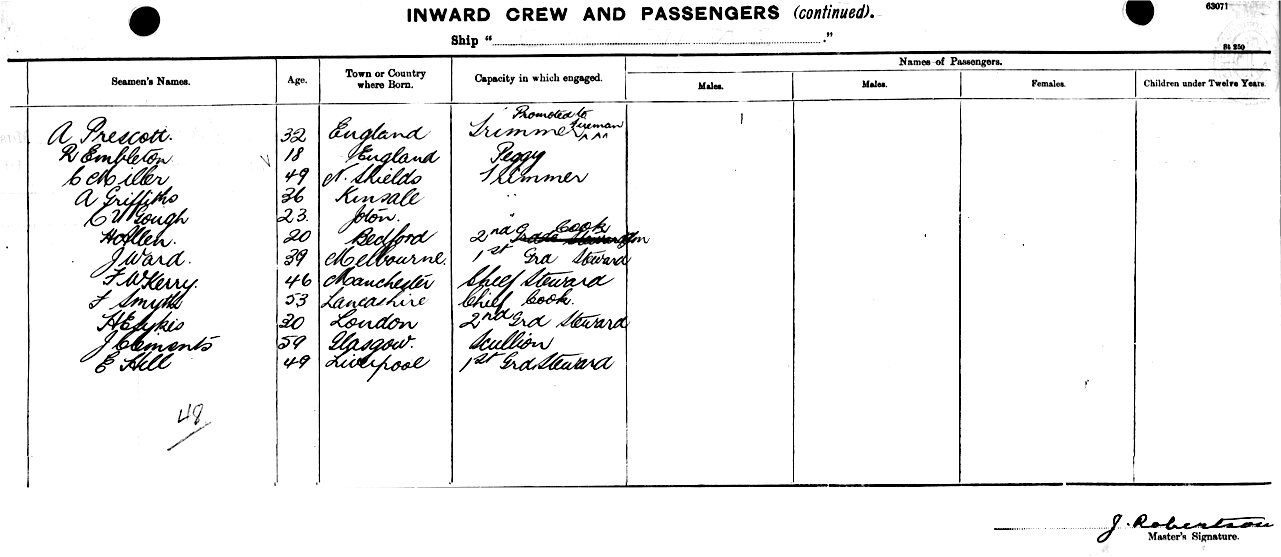 INWARD CREW AND PASSENGERS (continued).
63071
St 350
Ship "........................"
Names of Passengers.
Seamen's Names. Age. Town or Country where Born. Capacity in which engaged. Males. Males. Females. Children under Twelve Years.
Promoted to
A Prescott. 32 England Trimmer Fireman
R Embleton 18 England Peggy
C Miller 49 N. Shields Trimmer
A Griffiths 36 Kinsale "
C W Gough 23. "
H Allen. 20 Bedford 2nd Cook
J Ward. 39 Melbourne. 1st Grd Steward
F W Kerry. 46 Manchester Chief Steward
F Smyth 53 Lancashire Chief Cook.
H E Sykis 30 London 2nd Grd Steward
J Clements 59 Glasgow. Scullion
E Hill 49 Liverpool 1st Grd. Steward
48
J. Robertson
Master's Signature.